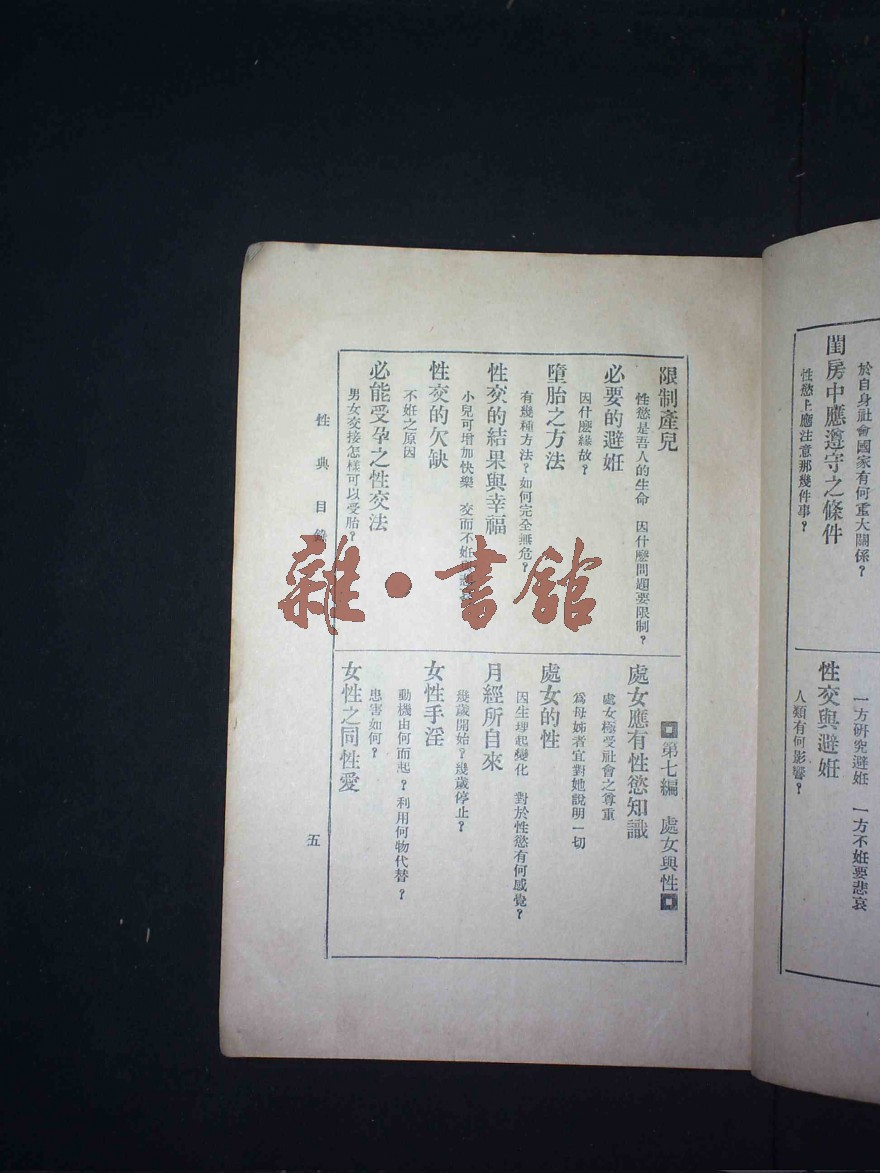 於自身社會國家有何重大關係？
閨房中應遵守之條件
性慾上應注意那幾件事？
一方研究避姙　一方不姙要悲哀
性交與避姙
人類有何影響？
限制產兒
性慾是吾人的生命　因什麼問題要限制？
必要的避姙
因什麼緣故？
墮胎之方法
有幾種方法？如何完全無危？
性交的結果與幸福
小兒可增加快樂　交而不姙
性交的欠缺
不姙之原因
必能受孕之性交法
男女交接怎樣可以受胎？
第七編　處女與性
處女應有性慾知識
處女極受社會之尊重
爲母姊者宜對她說明一切
處女的性
因生理起變化　對於性慾有何感覺？
月經所自來
幾歲開始？幾歲停止？
女性手淫
動機由何而起？利用何物代替？
患害如何？
女性之同性愛
性典目錄
五
雜·書館